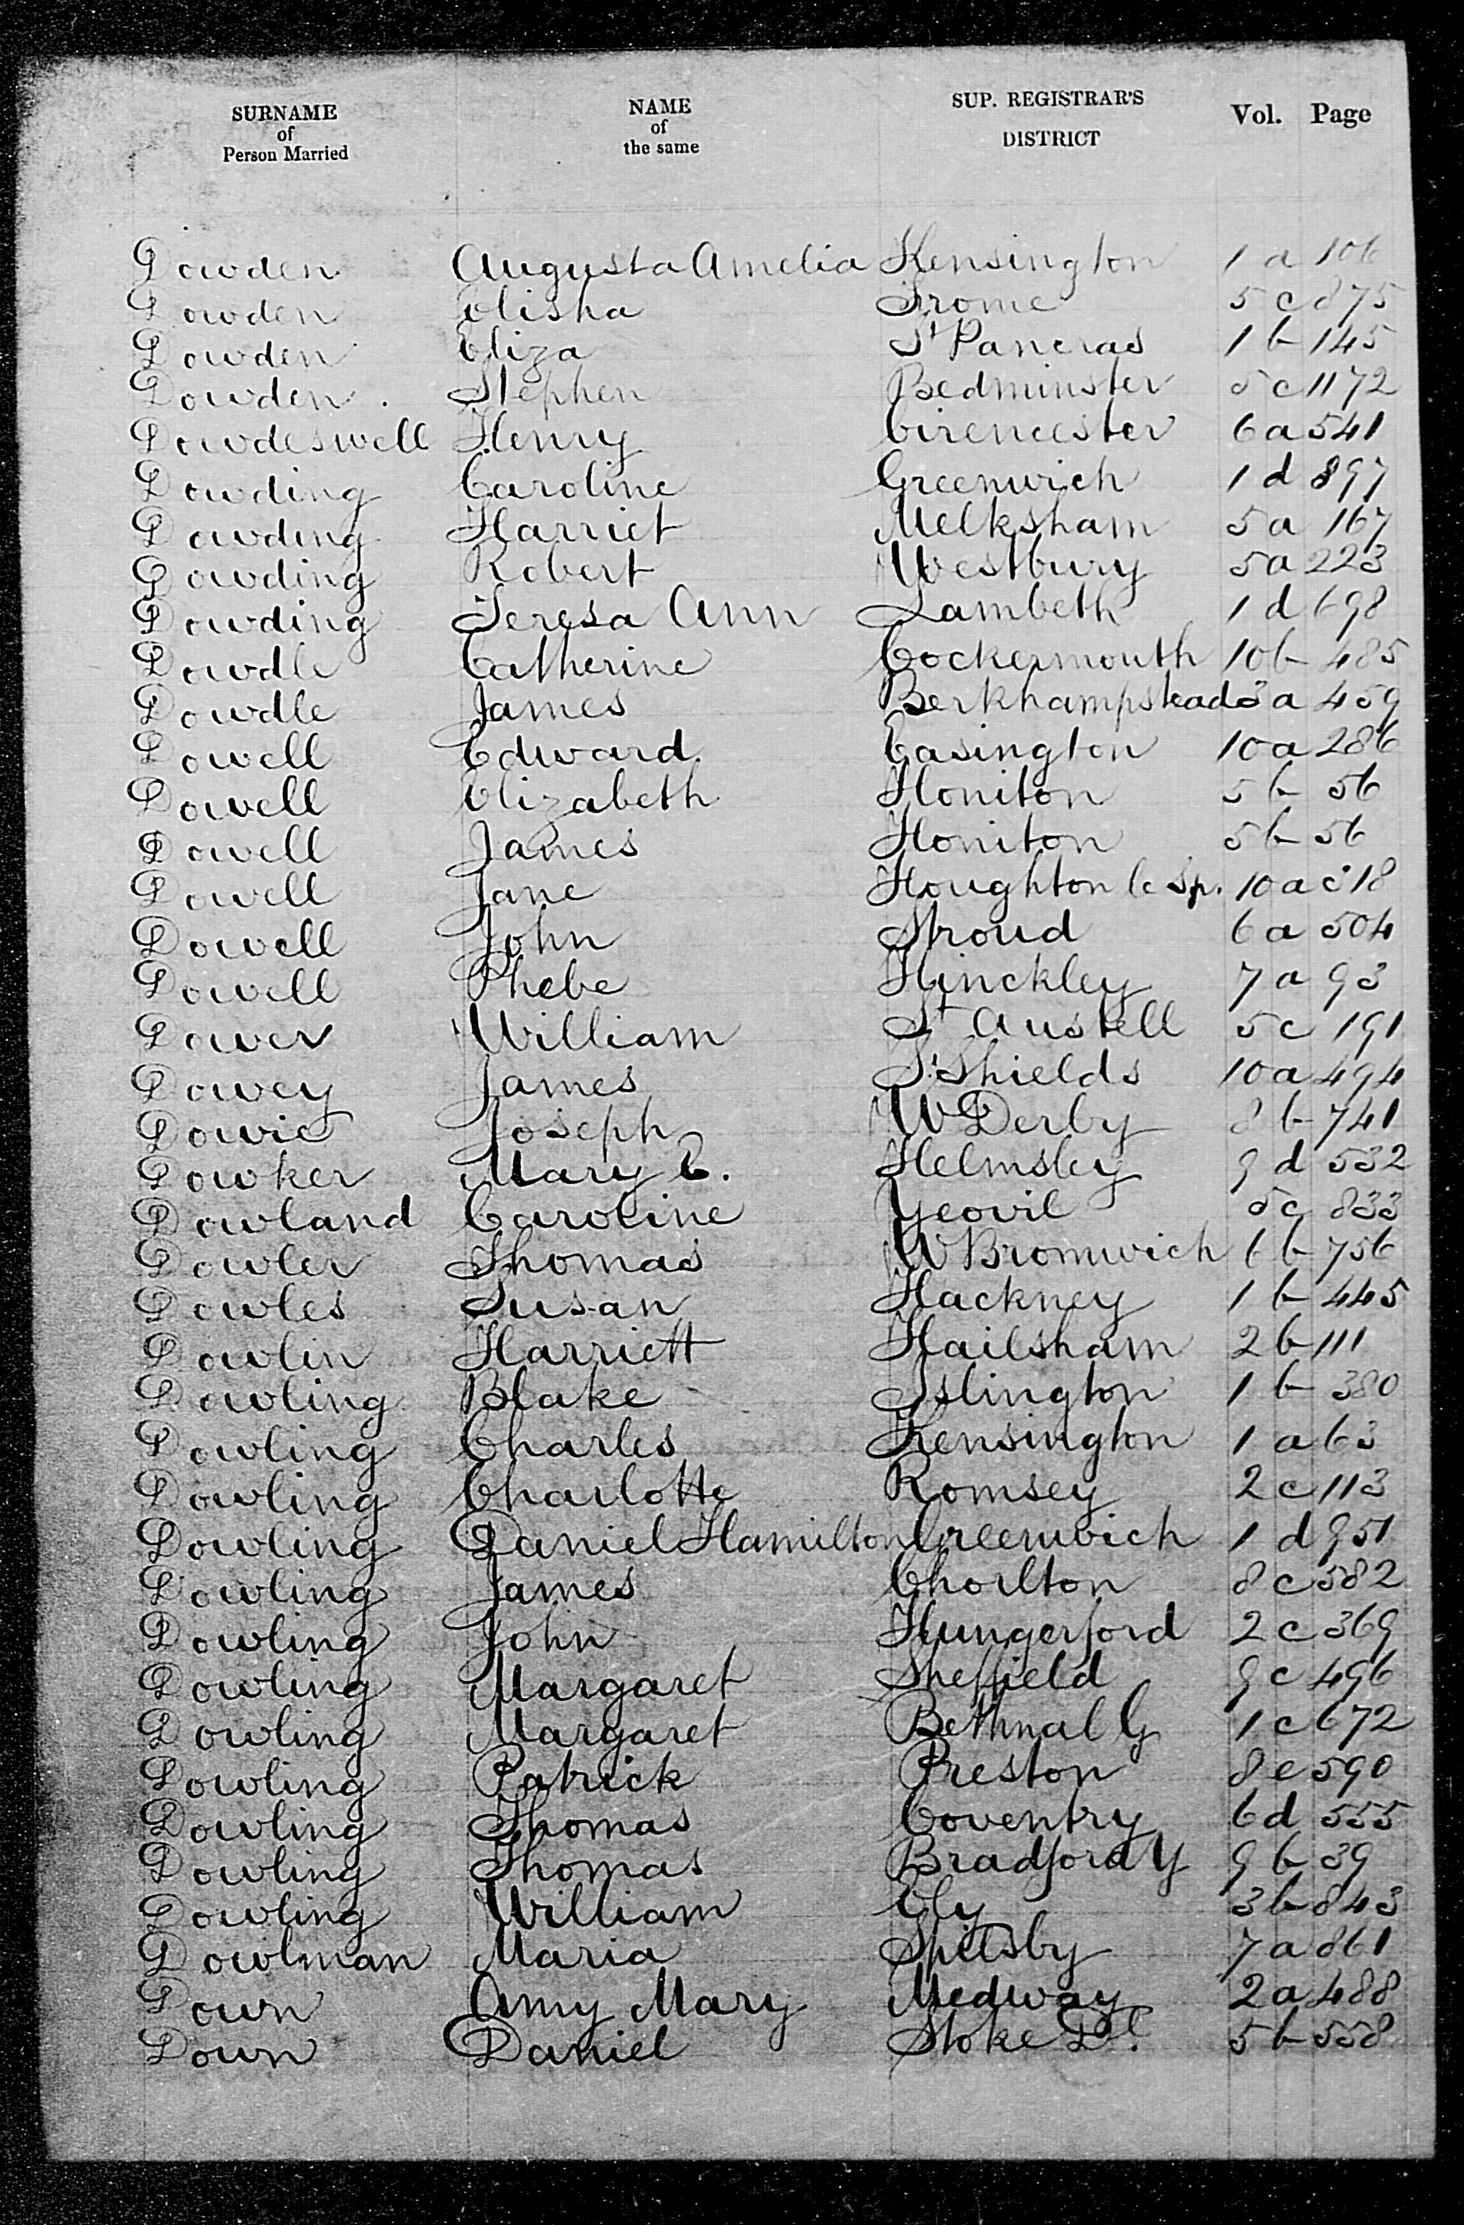 SURNAME of Person Married NAME of the same SUP. REGISTRAR'S DISTRICT Vol. Page
Dowden Augusta Amelia Kensington 1 a 106
Dowden Elisha Frome 5 c 875
Dowden Eliza St Pancras 1 b 145
Dowden Stephen Bedminster 5 c 1172
Dowdeswell Henry Cirencester 6 a 541
Dowding Caroline Greenwich 1 d 897
Dowding Harriet Melksham 5 a 167
Dowding Robert Westbury 5 a 223
Dowding Teresa Ann Lambeth 1 d 698
Dowdle Catherine Cockermouth 10 b 485
Dowdle James Berkhampstead 3 a 459
Dowell Edward Easington 10 a 286
Dowell Elizabeth Honiton 5 b 56
Dowell James Honiton 5 b 56
Dowell Jane Houghton le Sp. 10 a 318
Dowell John Stroud 6 a 504
Dowell Phebe Hinckley 7 a 93
Dower William St Austell 5 c 191
Dowey James S. Shields 10 a 494
Dowie Joseph W Derby 8 b 741
Dowker Mary E. Helmsley 9 d 532
Dowland Caroline Yeovil 5 c 833
Dowler Thomas W Bromwich 6 b 756
Dowles Susan Hackney 1 b 445
Dowlin Harriett Hailsham 2 b 111
Dowling Blake Islington 1 b 380
Dowling Charles Kensington 1 a 63
Dowling Charlotte Romsey 2 c 113
Dowling Daniel Hamilton Greenwich 1 d 951
Dowling James Chorlton 8 c 582
Dowling John Hungerford 2 c 369
Dowling Margaret Sheffield 9 c 496
Dowling Margaret Bethnal G 1 c 672
Dowling Patrick Preston 8 e 590
Dowling Thomas Coventry 6 d 555
Dowling Thomas Bradford Y 9 b 39
Dowling William Ely 3 b 843
Dowlman Maria Spilsby 7 a 861
Down Amy Mary Medway 2 a 488
Down Daniel Stoke Dl. 5 b 558